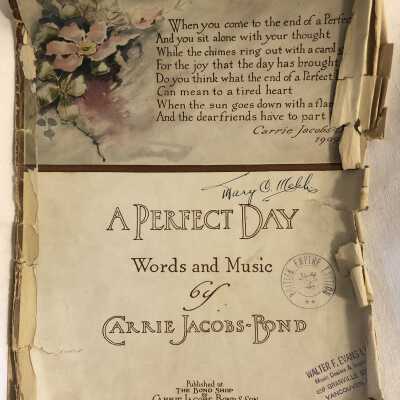 When you come to the end of a Perfect
And you sit alone with your thought
While the chimes ring out with a carol g
For the joy that the day has brought
Do you think what the end of a Perfect
Can mean to a tired heart
When the sun goes down with a flam
And the dear friends have to part
Carrie Jacobs-
A PERFECT DAY
Words and Music
by
CARRIE JACOBS-BOND
BRITISH EMPIRE EDITION
WALTER F. EVANS L
Music Dealers &
GRANVILLE ST
VANCOUVER
Published at
THE BOND SHOP
By
CARRIE JACOBS-BOND & SON